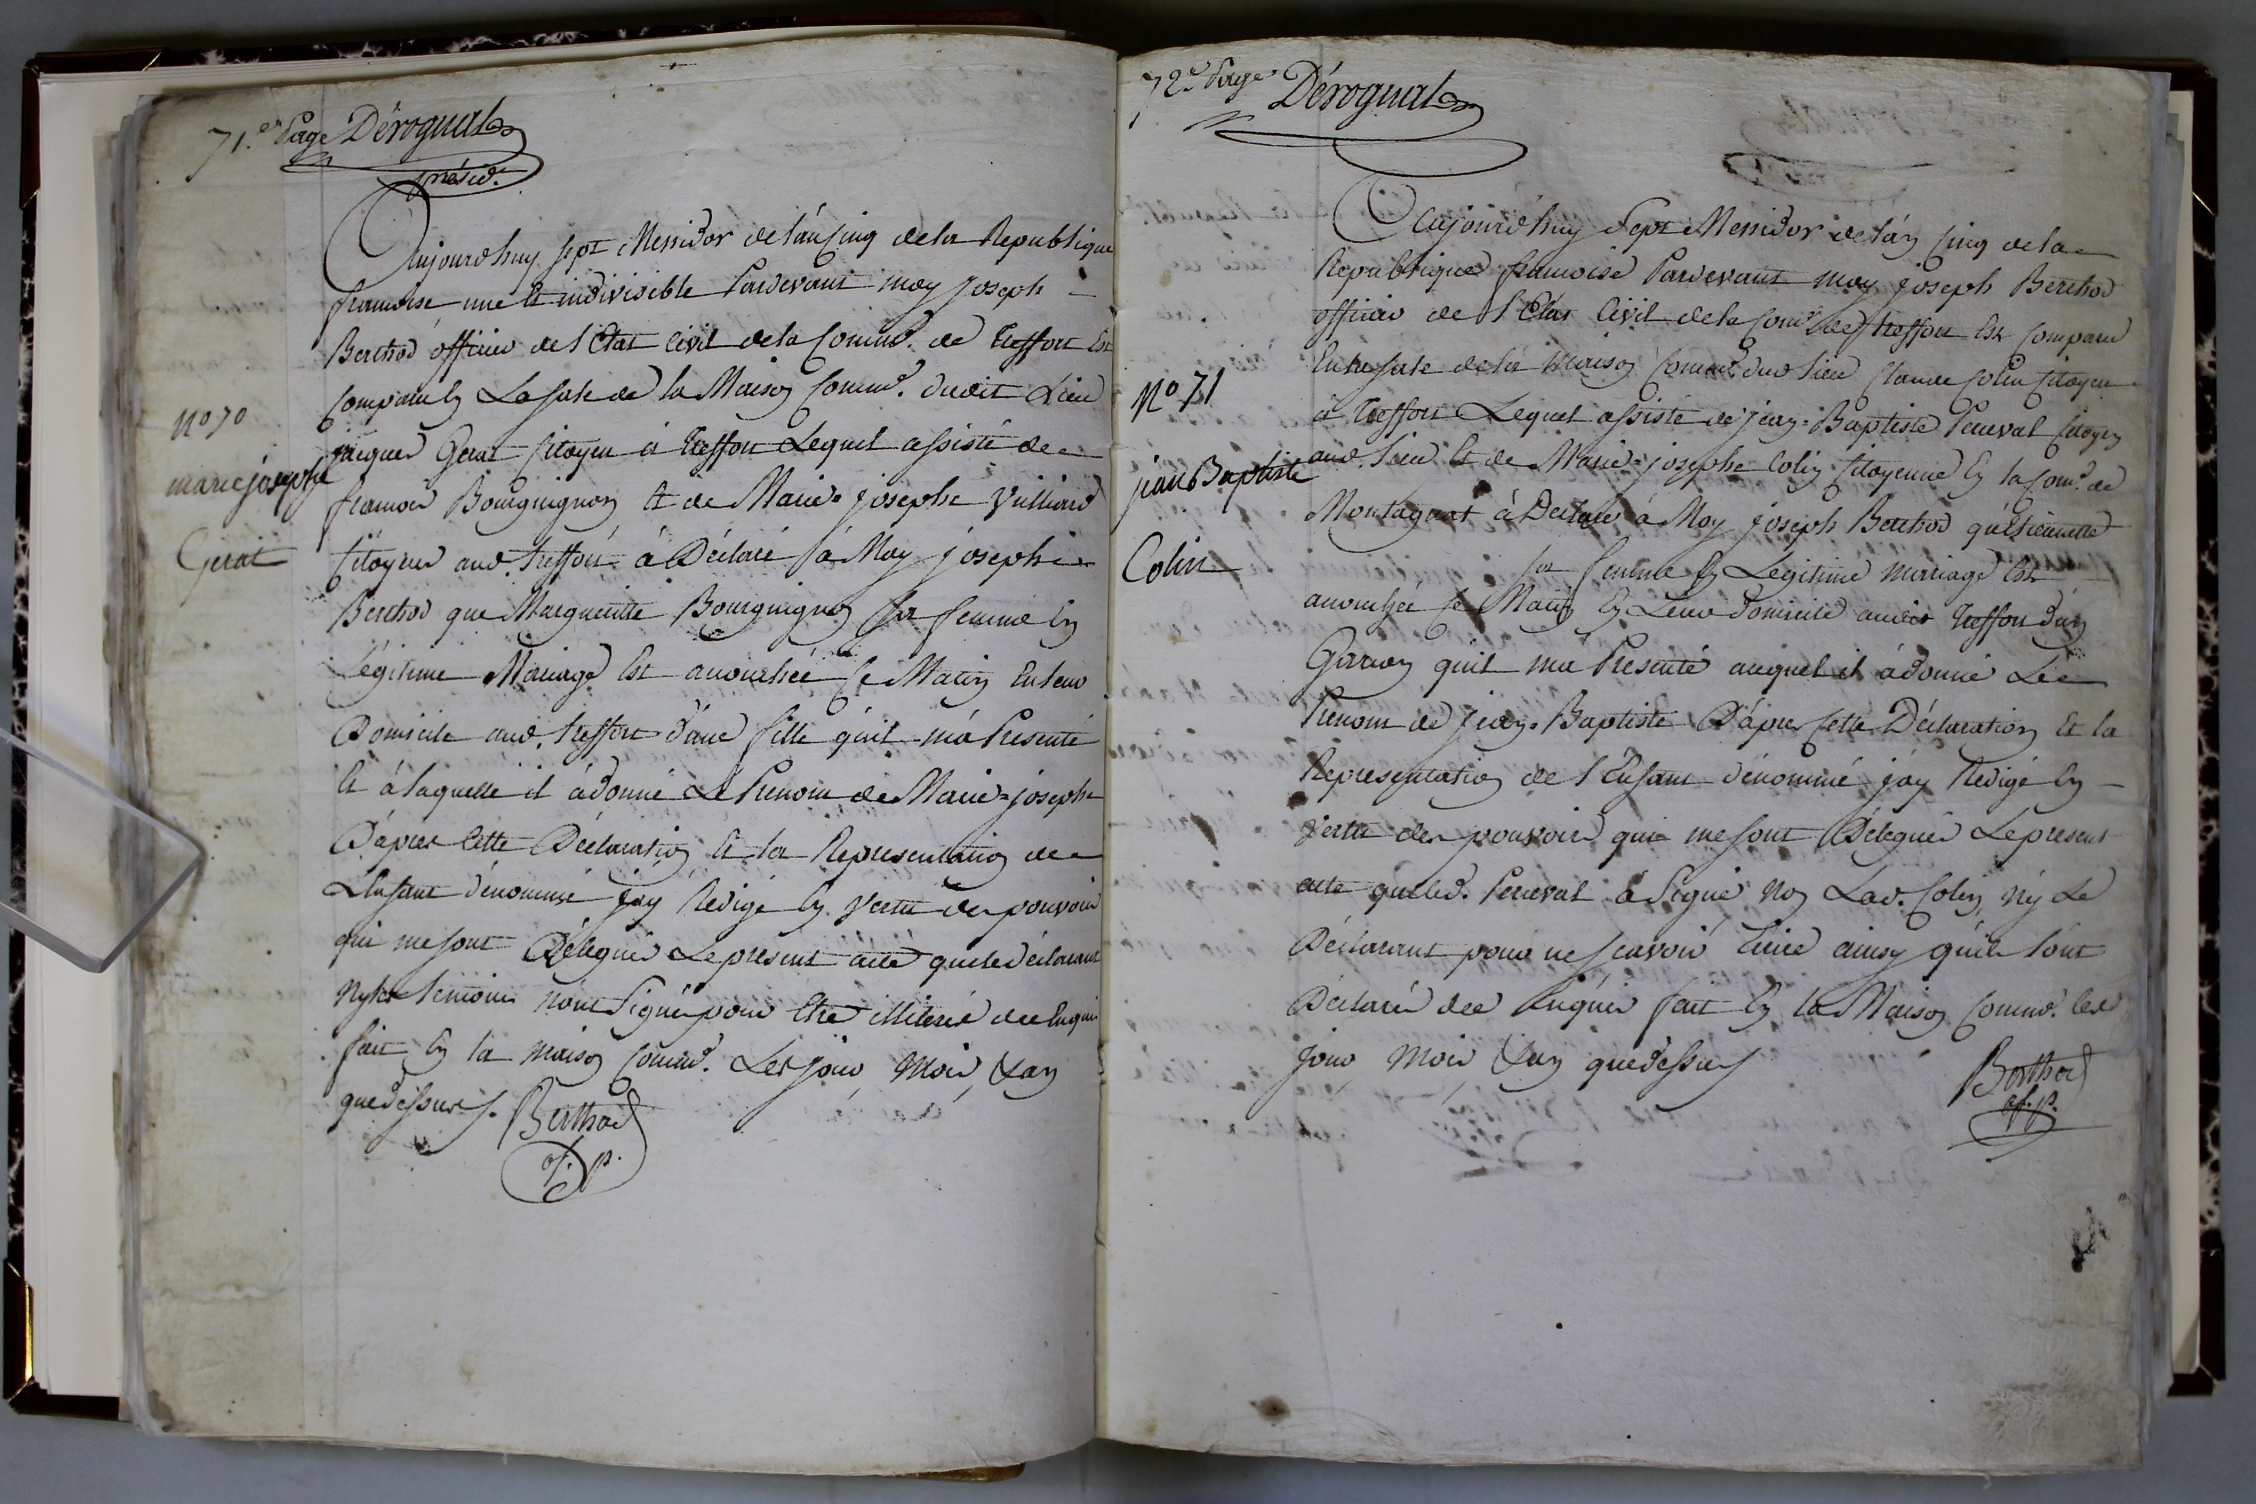 71.e Page Dérognat
présid.t
Aujourdhuy sept Messidor de lán Cinq de la Republique
francoise une Et indivisible Pardevant moy Joseph
Berthod officier de l'Etat Civil de la Commne. de treffort Est
Comparu En La Sale de la Maison Commne. dudit Lieu
N° 70
jacques Gerat Citoyen à treffort Lequel assisté de
marie josephe
francois Bourguignon Et de Marie=josephe Vuilliard
Gerat
Citoyens aud. treffort à Déclaré à Moy joseph
Berthod que Margueritte Bourguignon sa femme En
Légitime Mariage Est accouchée Ce Matin En leur
Domicile aud. treffort d'une fille qu'il má Presenté
Et à laquelle il à donné Le Prenom de Marie=josephe
D'apres Cette Déclaration Et la Representation de
L'Enfant dénommé jáy Redigé En Vertu des pouvoirs
qui me sont Délegués Le present acte que le Déclarant
Ny les temoins n'ont Signé pour Etre illiterés de Enquis
fait En la Maison Commne. Les jour, Mois, & an
que dessus. Berthod
of. p.
72.e Page Dérognat
Aujourd'huy Sept Messidor de lán Cinq de la
Republique francoise Pardevant Moy Joseph Berthod
officier de l'Etat Civil de la Comne. de treffort Est Comparu
En la Sale de la Maison Commne. dud. Lieu Claude Colin Citoyen
N° 71
à treffort Lequel assisté de jean=Baptiste Perceval Citoyen
jean Baptiste
aud. Lieu Et de Marie=josephe Colin Citoyenne En la Comne. de
Colin
Montagnat à Declaré à Moy joseph Berthod qu'Etiennette
sa femme En Légitime mariage Est
accouchée Ce Matin En Leur domicile audit treffort d'un
Garcon qu'il ma Presenté auquel il à donné Le
Prenom de jean=Baptiste D'apres Cette Déclaration Et la
Representation de l'Enfant dénommé jáy Redigé En
Vertu des pouvoirs qui me sont Délegués Le present
acte que led. Perceval à Signé Non Lad. Colin Ny Le
Déclarant pour ne Scavoir Ecrire ainsy qu'ils L'ont
Déclaré de Enquis fait En la Maison Commne. Les
jour, Mois, & an que dessus
Berthod
of. p.